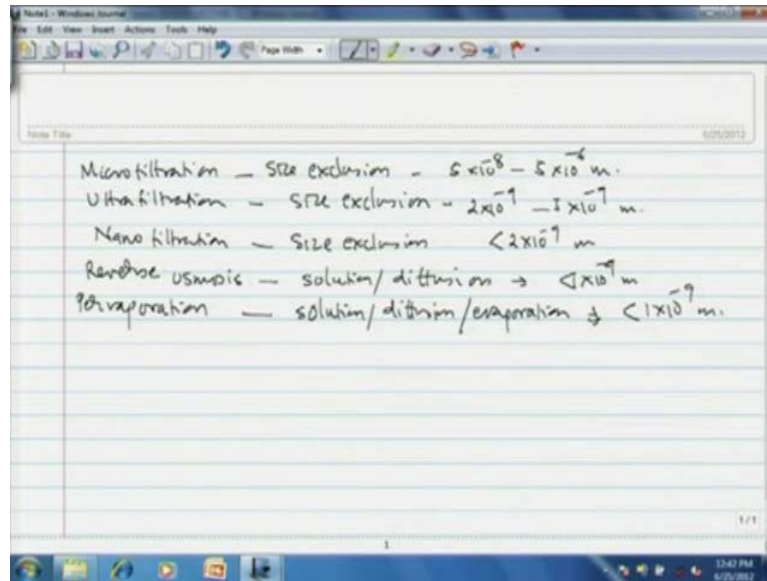 Note1 - Windows Journal
File Edit View Insert Actions Tools Help
Page Width
Note Title
6/25/2012
Microfiltration - Size exclusion - 5 x 10^-8 - 5 x 10^-6 m.
Ultrafiltration - Size exclusion - 2x10^-9 - 5 x 10^-7 m.
Nano filtration - Size exclusion < 2x10^-9 m
Reverse osmosis - solution/diffusion → < 1x10^-9 m
Pervaporation - solution/diffusion/evaporation → < 1x10^-9 m.
1/1
1
12:42 PM
6/25/2012